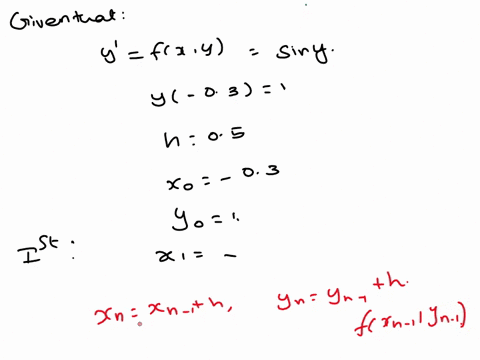 Given that:
y' = f(x,y) = sin y.
y(-0.3) = 1
h = 0.5
x₀ = -0.3
y₀ = 1.
Iˢᵗ: x₁ = -
xₙ = xₙ₋₁ + h, yₙ = yₙ₋₁ + h.
f(xₙ₋₁, yₙ₋₁)